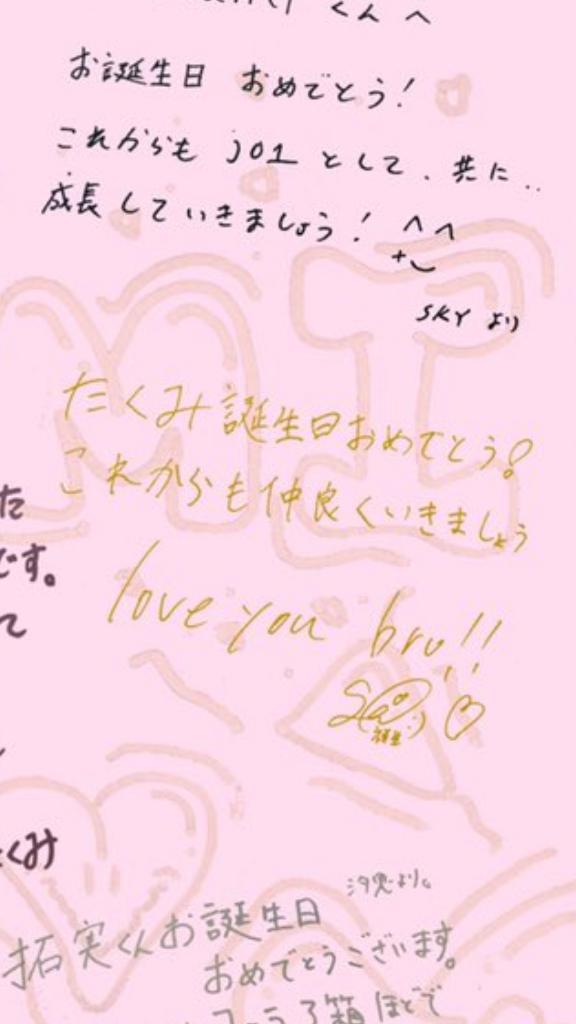 くんへ
お誕生日 おめでとう!
これからも JO1 として、共に..
成長していきましょう! ^^
SKY より
たくみ誕生日おめでとう!
これからも仲良くいきましょう
love you bro!!
た
です。
て
くみ
汐恩より。
拓実くんお誕生日
おめでとうございます。
コーラ3箱ほどで